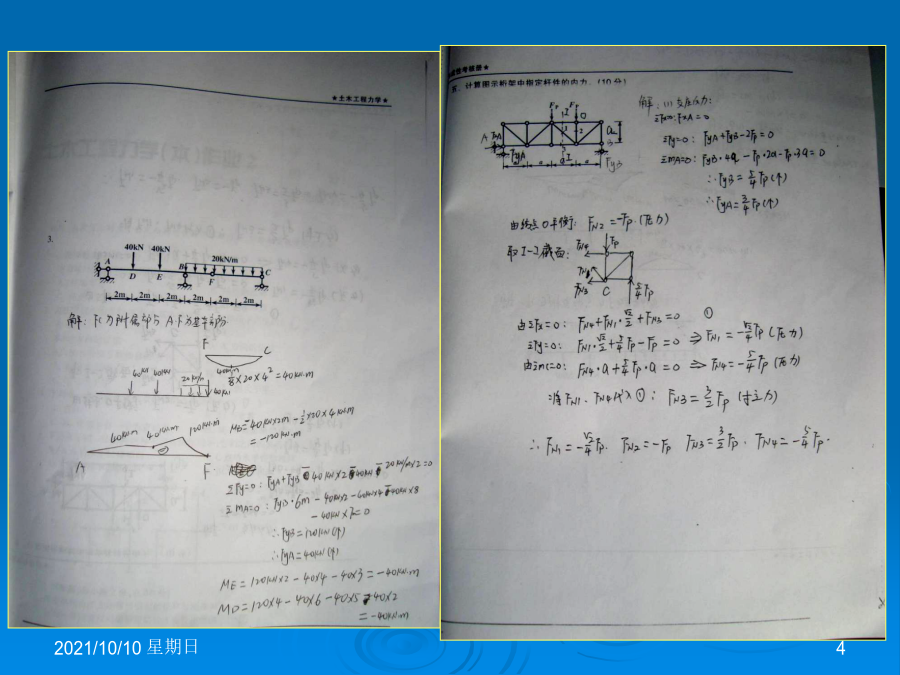 ★土木工程力学★
3.
40kN 40kN
20kN/m
A D E B F C
2m 2m 2m 2m 2m 2m
解: FC为附属部分 AF为基本部分
F C
40kN 40kN 20kN/m 40kN
⅛×20×4²=40kN·m
MB=-40kN×2m-½×20×4kN·m
=-120kN·m
40kN·m 40kN·m 120kN·m
A F
ΣMA=0: FyB·6m-40kN×2-40kN×4-40kN×8
-40kN×7=0
∴FyB=120kN(↑)
∴FyA=40kN(↑)
ME=120kN×2-40×4-40×3=-40kN·m
MD=120×4-40×6-40×5-40×2
=-40kN·m
五、计算图示桁架中指定杆件的内力。(10分)
解: (1) 支座反力:
ΣFy=0: FyA+FyB-2Fp=0
ΣmA=0: FyB·4a-Fp·2a-Fp·3a=0
∴FyB=5/4Fp(↑)
∴FyA=3/4Fp(↑)
由结点O平衡: FN2=-Fp(压力)
取I-I截面:
FN4 Fp
FN1
FN3 C 5/4Fp
由ΣFx=0: FN4+FN1·√2/2+FN3=0 ①
ΣFy=0: FN1·√2/2+5/4Fp-Fp=0 ⇒FN1=-√2/4Fp(压力)
由Σmc=0: FN4·a+5/4Fp·a=0 ⇒FN4=-5/4Fp(压力)
将FN1、FN4代入①: FN3=3/2Fp(拉力)
∴FN1=-√2/4Fp. FN2=-Fp FN3=3/2Fp. FN4=-5/4Fp.
2021/10/10 星期日
4